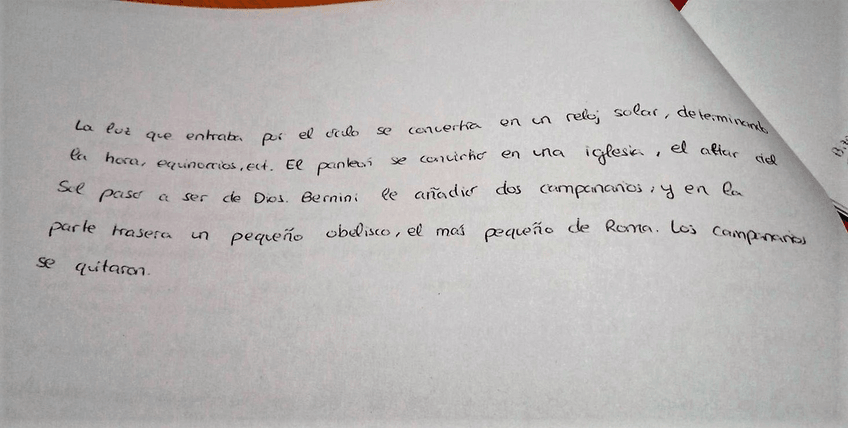 La luz que entraba por el óculo se convertía en un reloj solar, determinando
la hora, equinoccios, ect. El panteón se convirtió en una iglesia, el altar del
Sol paso a ser de Dios. Bernini le añadio dos campanarios, y en la
parte trasera un pequeño obelisco, el mas pequeño de Roma. Los campanarios
se quitaron.